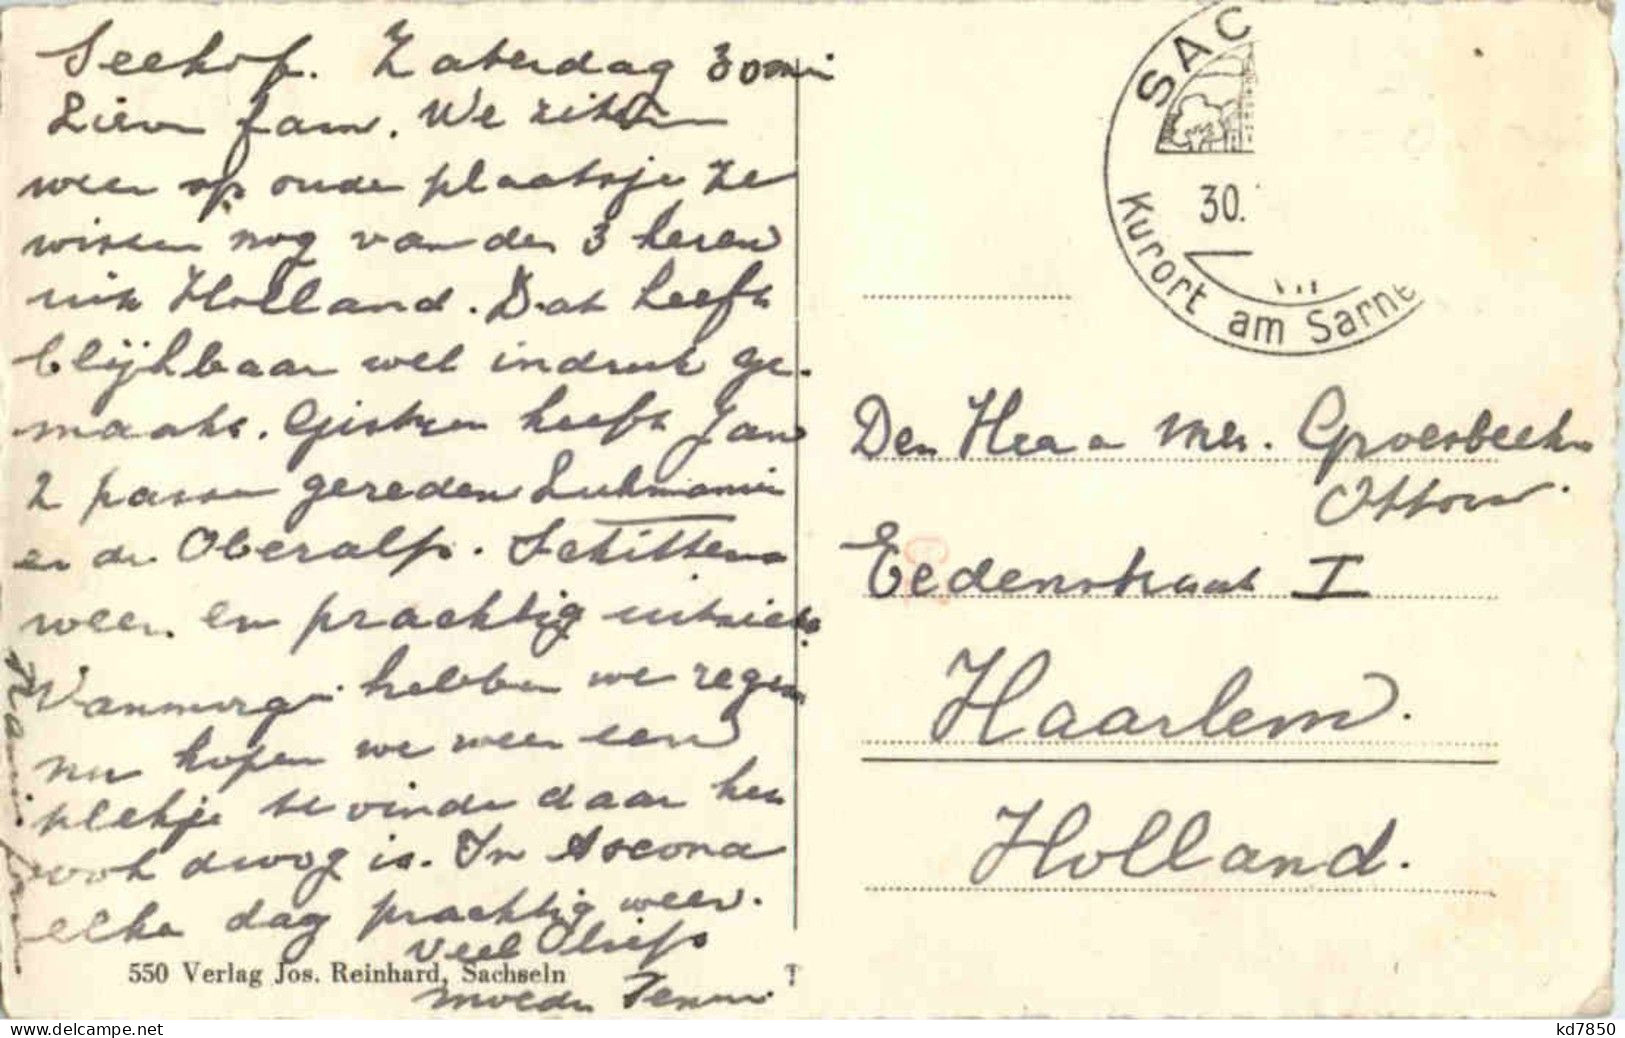 Seehof. Zaterdag 30 mei
Lieve fam. We zitten
weer op oude plaatsje ze
wisten nog van de 3 heren
uit Holland. Dat heeft
blijkbaar wel indruk ge-
maakt. Gisteren heeft Jan
2 passen gereden Lukmanier
en de Oberalp. Schitterend
weer en prachtig uitzicht.
Vanmorgen hebben we regen
nu hopen we weer een
plekje te vinden daar het
ook droog is. In Ascona
elke dag prachtig weer.
Veel liefs
moeder
Jan
550 Verlag Jos. Reinhard, Sachseln
SAC
30.
VII
Kurort am Sarne
Den Heer en Mev. Groesbeek
Ottow.
Eedenstraat I
Haarlem.
Holland.
kd7850